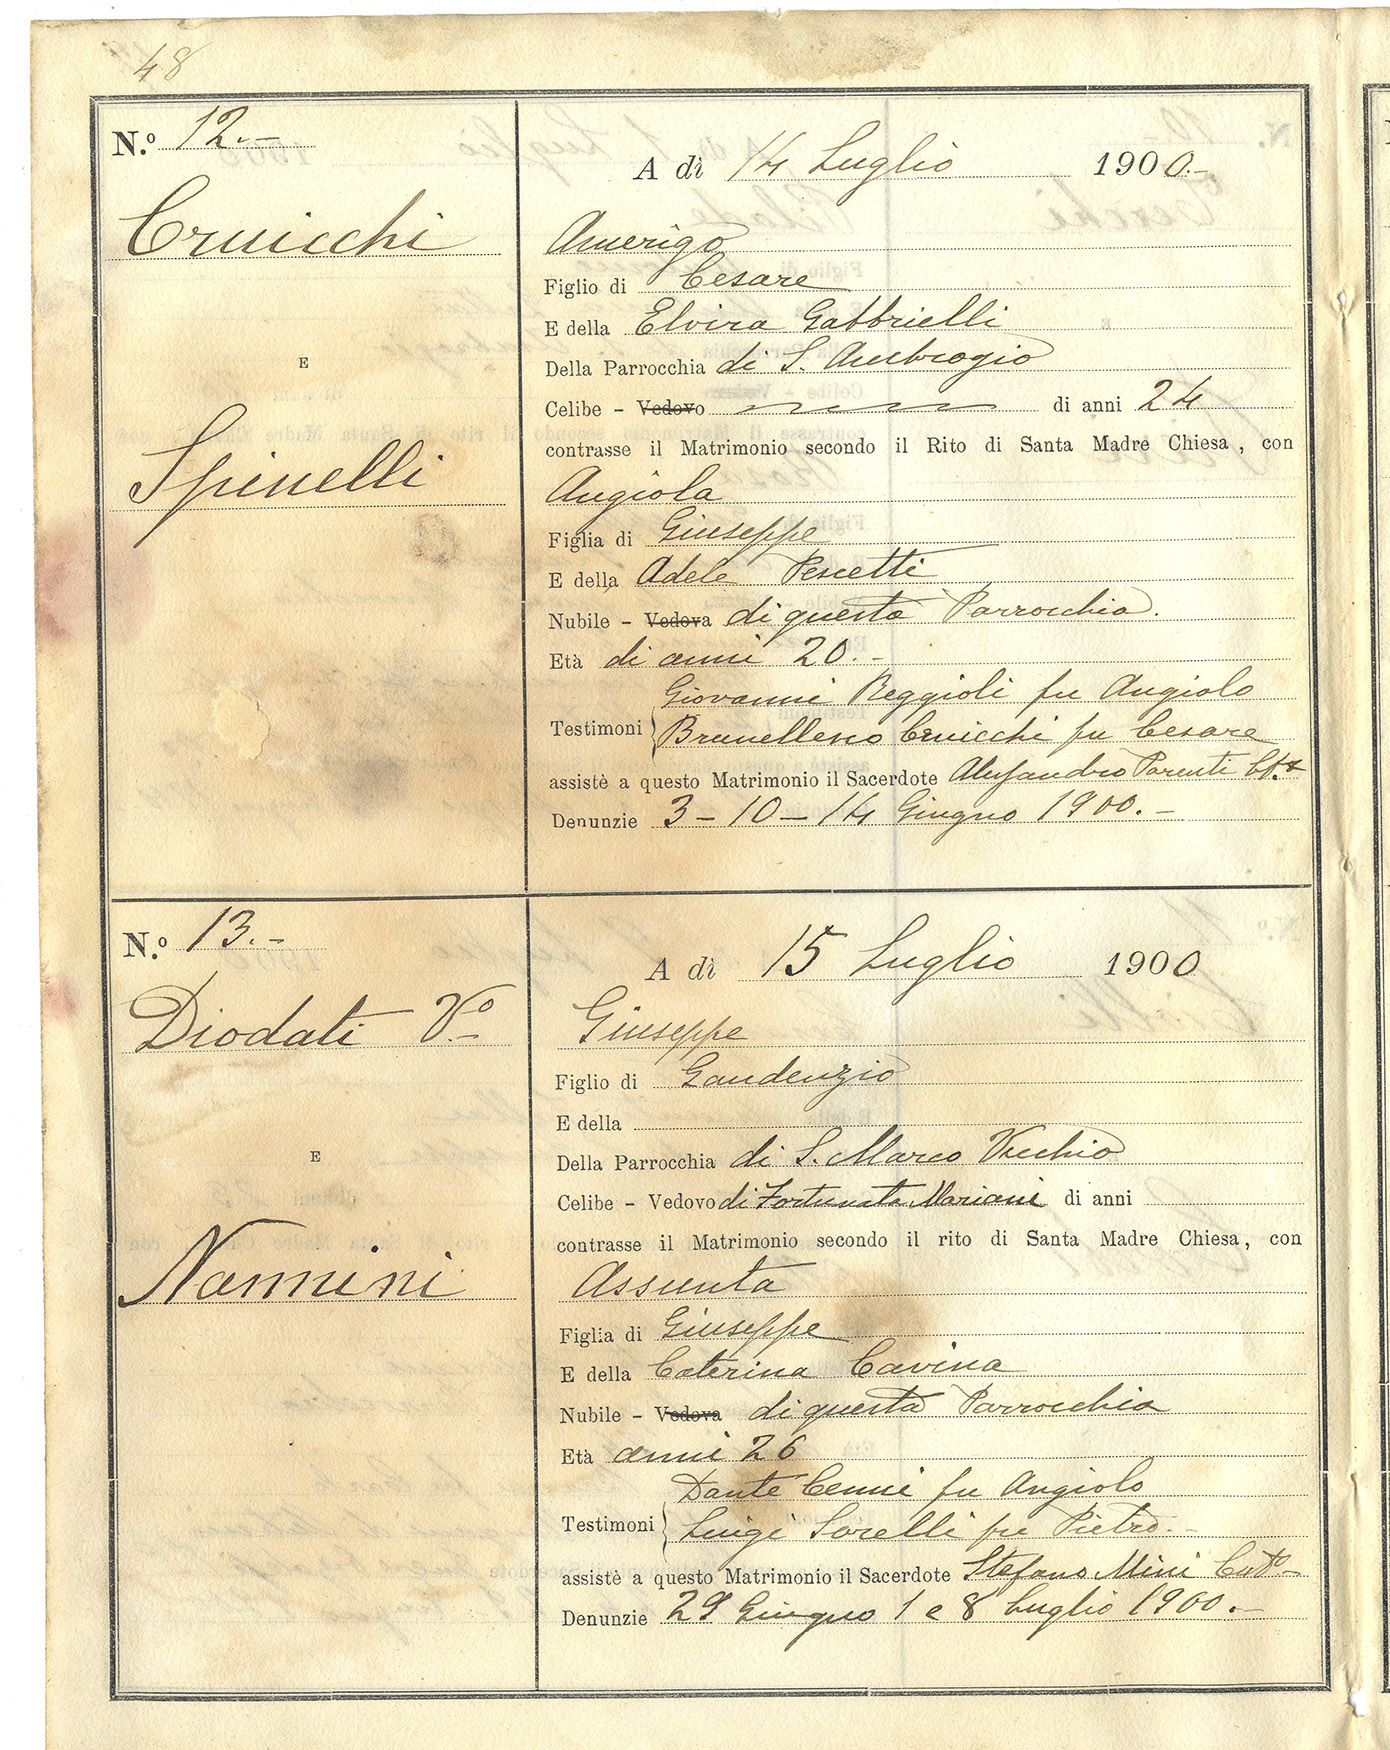 48
N.º 12.-
A dì 14 Luglio 1900.-
Cruicchi
Amerigo
Figlio di Cesare
E della Elvira Gabbrielli
E
Della Parrocchia di S. Ambrogio
Celibe - Vedovo di anni 24
contrasse il Matrimonio secondo il Rito di Santa Madre Chiesa, con
Spinelli
Angiola
Figlia di Giuseppe
E della Adele Pescetti
Nubile - Vedova di questa Parrocchia.
Età di anni 20.-
Giovanni Reggioli fu Angiolo
Testimoni
Brunellesco Cruicchi fu Cesare
assistè a questo Matrimonio il Sacerdote Alessandro Parenti
Denunzie 3 - 10 - 14 Giugno 1900.-
N.º 13.-
A dì 15 Luglio 1900
Diodati Vº.-
Giuseppe
Figlio di Gaudenzio
E della
E
Della Parrocchia di S. Marco Vecchio
Celibe - Vedovo di Fortunata Mariani di anni
contrasse il Matrimonio secondo il rito di Santa Madre Chiesa, con
Nannini
Assunta
Figlia di Giuseppe
E della Caterina Cavina
Nubile - Vedova di questa Parrocchia
Età anni 26
Dante Cenni fu Angiolo
Testimoni
Luigi Sorelli fu Pietro.-
assistè a questo Matrimonio il Sacerdote Stefano Mini
Denunzie 29 Giugno 1 e 8 Luglio 1900.-